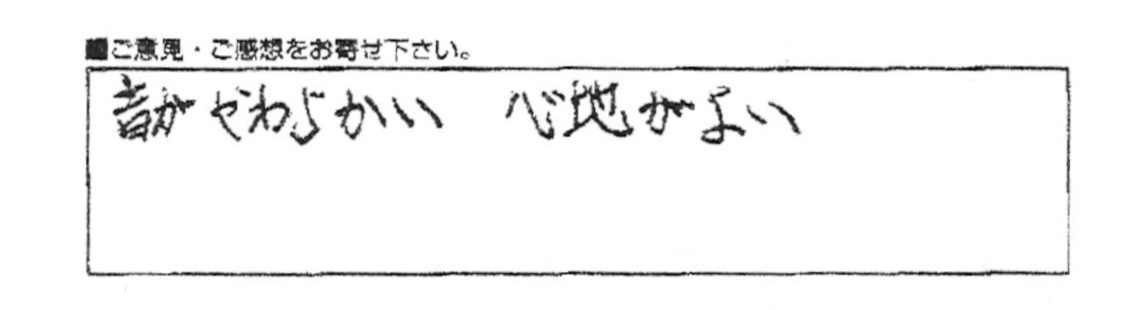 ■ご意見・ご感想をお寄せ下さい。
音がやわらかい 心地がよい